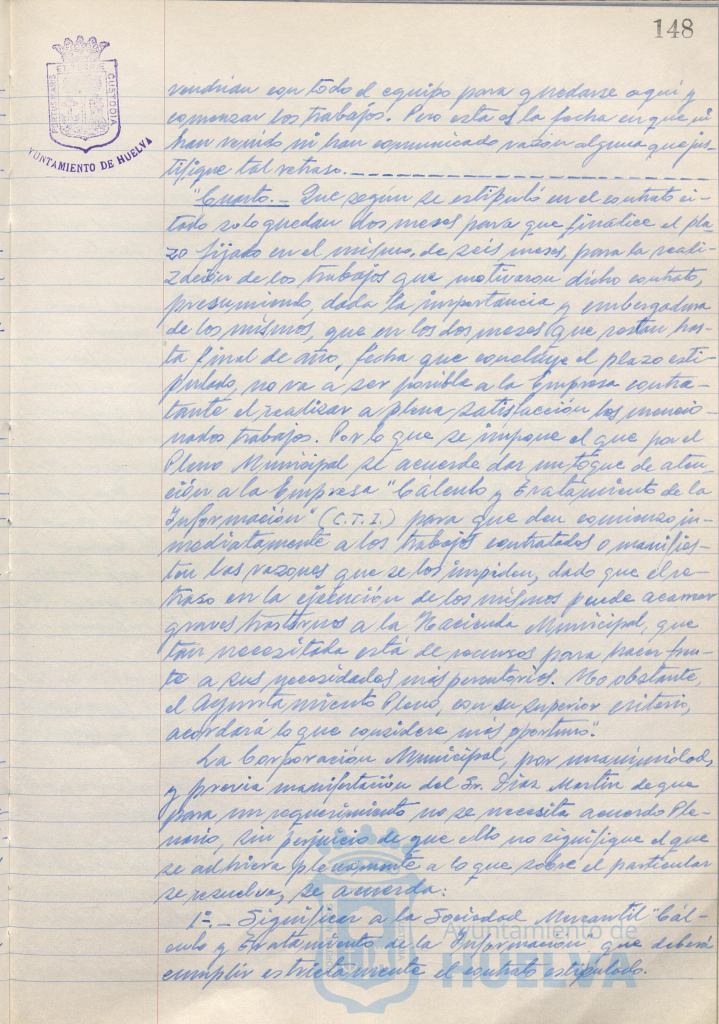 148
PORTUS MARIS
CUSTODIA
AYUNTAMIENTO DE HUELVA
vendrían con todo el equipo para quedarse aquí y
comenzar los trabajos. Pero esta es la fecha en que ni
han venido ni han comunicado razón alguna que jus-
tifique tal retraso.
"Cuarto.- Que según se estipuló en el contrato ci-
tado solo quedan dos meses para que finalice el pla-
zo fijado en el mismo, de seis meses, para la reali-
zación de los trabajos que motivaron dicho contrato,
presumiendo, dada la importancia y embergadura
de los mismos, que en los dos meses que restan has-
ta final de año, fecha que concluye el plazo esti-
pulado, no va a ser posible a la Empresa contra-
tante el realizar a plena satisfacción los mencio-
nados trabajos. Por lo que se impone el que por el
Pleno Municipal se acuerde dar un toque de aten-
ción a la Empresa "Cálculo y Tratamiento de la
Información" (C.T.I.) para que den comienzo in-
mediatamente a los trabajos contratados o manifies-
ten las razones que se los impiden, dado que el re-
traso en la ejecución de los mismos puede acarrear
graves trastornos a la Hacienda Municipal, que
tan necesitada está de recursos para hacer fren-
te a sus necesidades más perentorias. No obstante,
el Ayuntamiento Pleno, con su superior criterio,
acordará lo que considere más oportuno".
La Corporación Municipal, por unanimidad,
y previa manifestación del Sr. Díaz Martín de que
para un requerimiento no se necesita acuerdo Ple-
nario, sin perjuicio de que ello no signifique el que
se adhiera plenamente a lo que sobre el particular
se resuelva, se acuerda:
1º.- Significar a la Sociedad Mercantil "Cál-
culo y Tratamiento de la Información, que deberá
cumplir estrictamente el contrato estipulado.
Ayuntamiento de
HUELVA